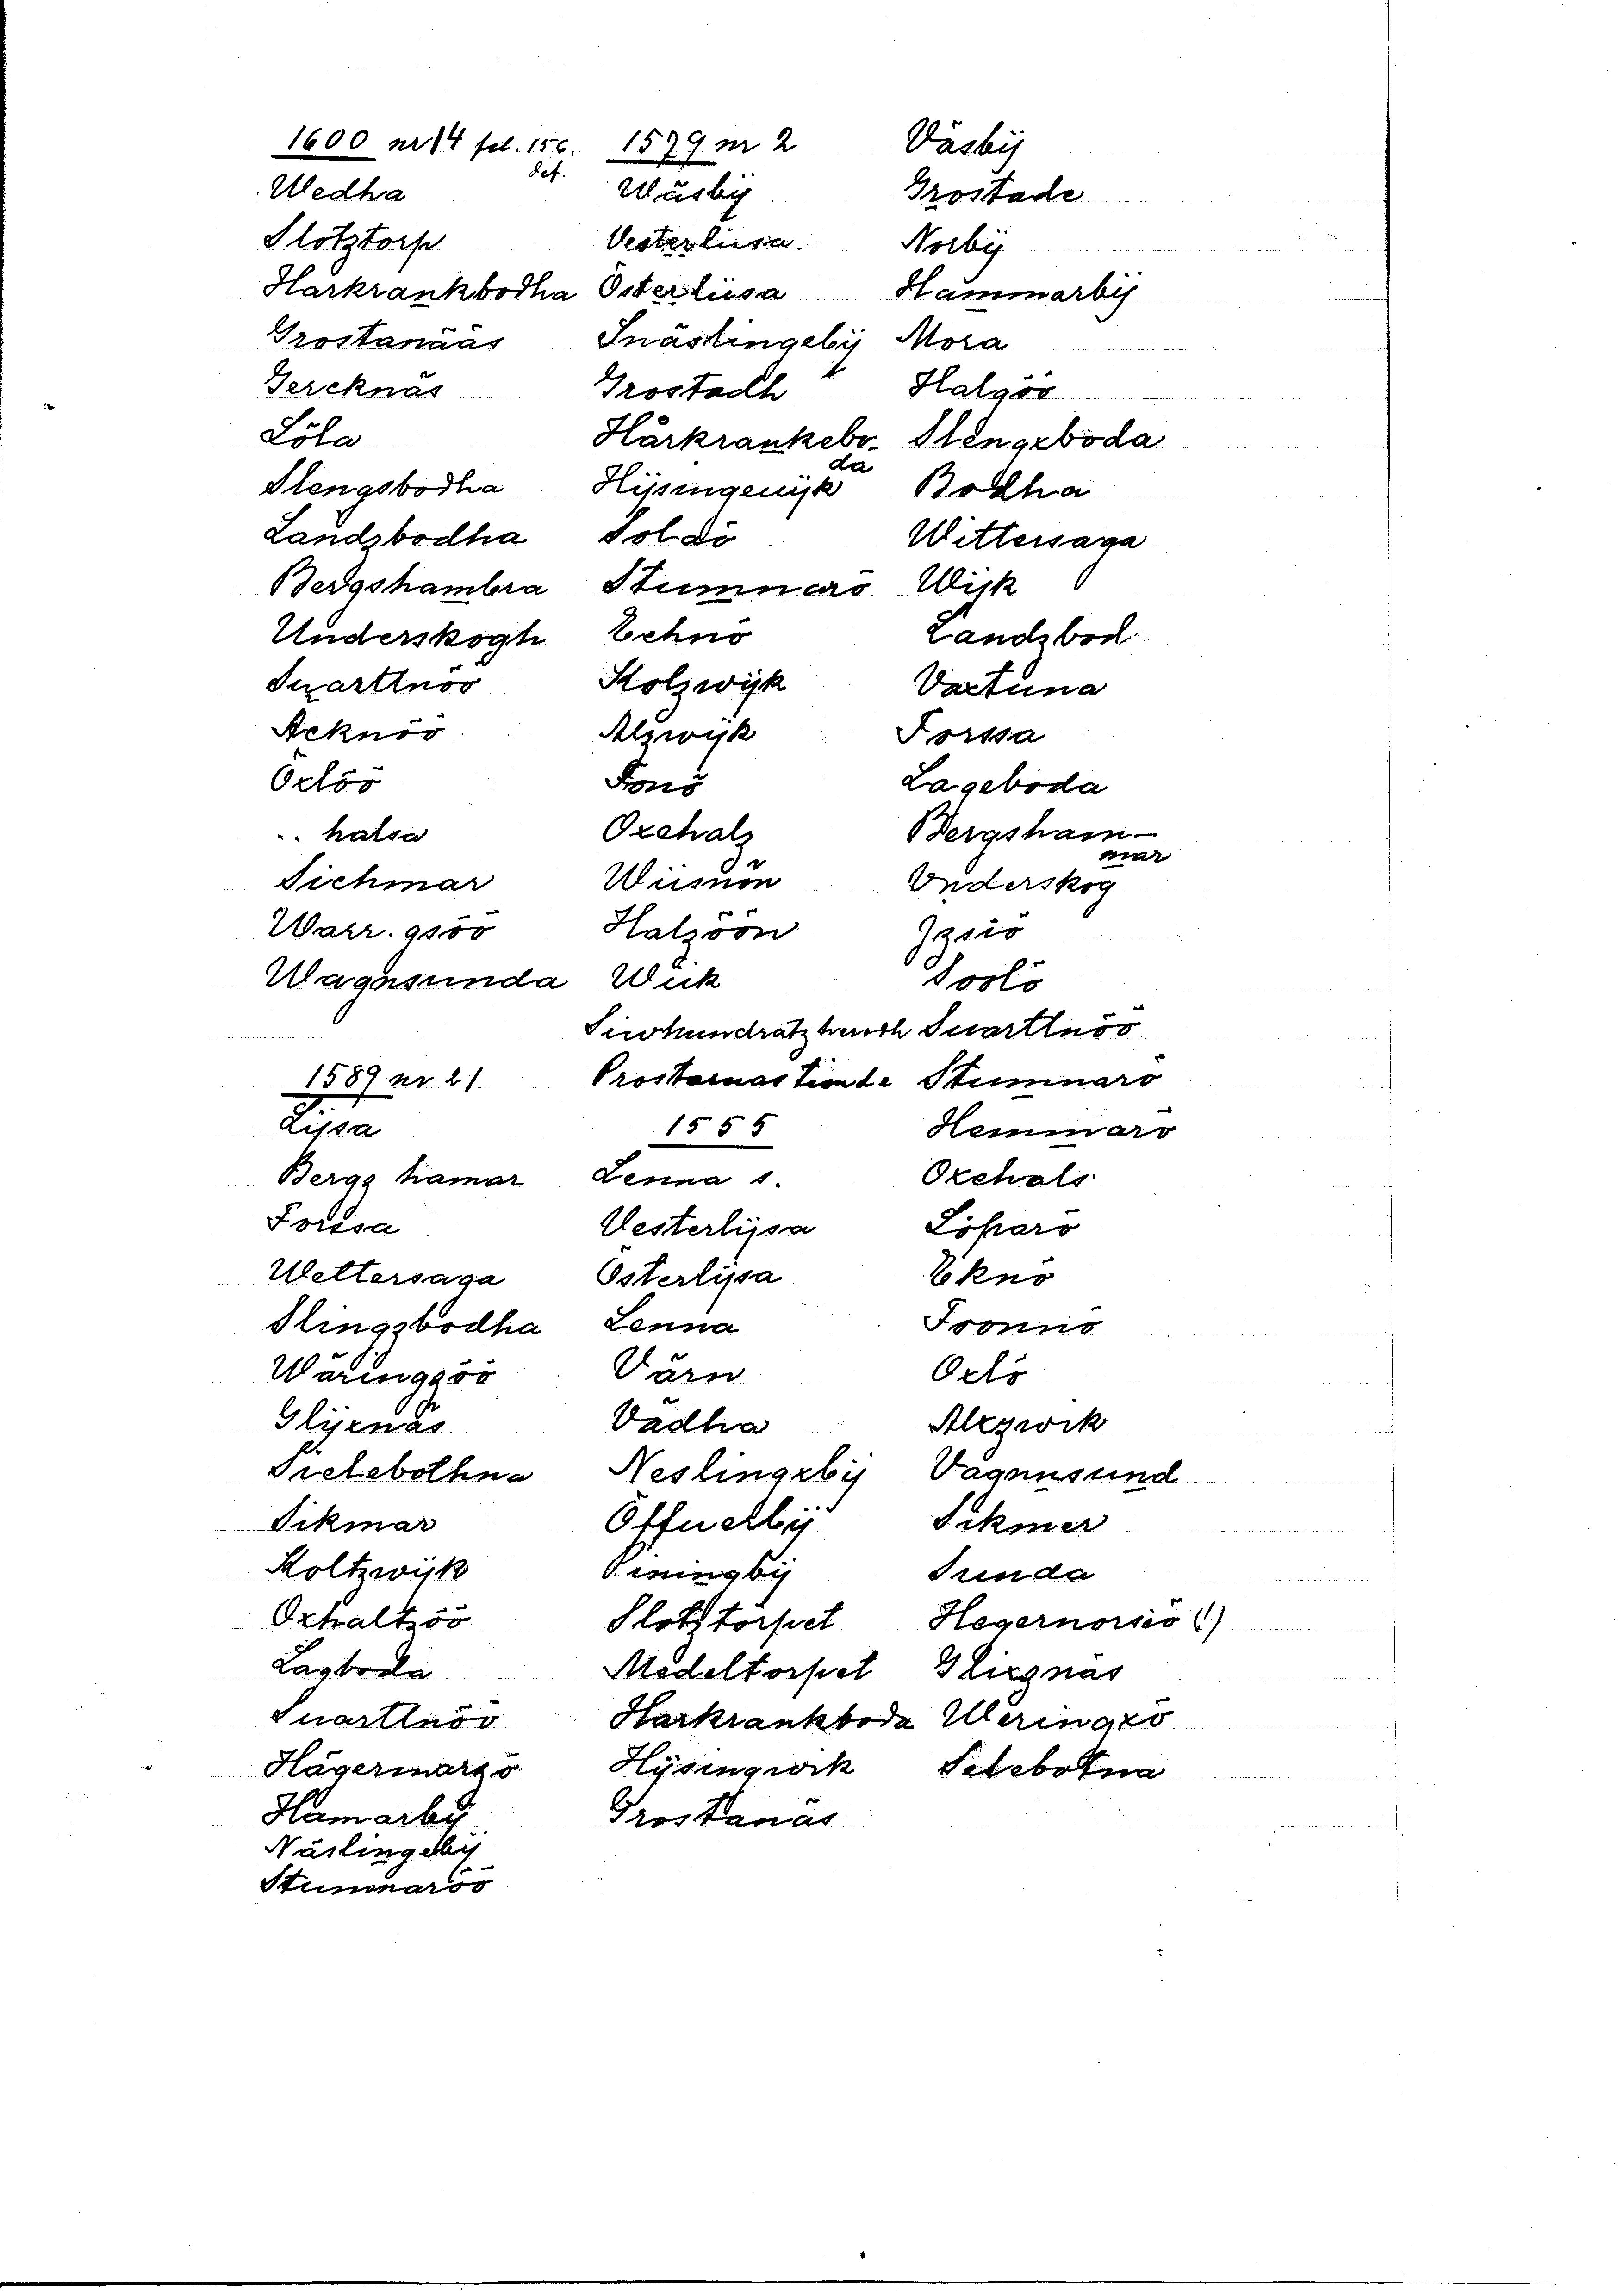 1600 nr 14 fol. 156.
def.
Wedha
Slotztorp
Harkrankbodha
Grostanääs
Gercknäs
Löla
Slengsbodha
Landzbodha
Bergshambra
Underskogh
Suarttnöö
Acknöö
Oxlöö
.. halsa
Sichmar
Warr. gsöö
Wagnsunda
1589 nr 21
Lijsa
Bergz hamar
Forssa
Wettersaga
Slingzbodha
Wäringzöö
Glijxnäs
Sielebothna
Sikmar
Koltzwijk
Oxhaltzöö
Lagboda
Suartlnöö
Hägermarzö
Hamarbÿ
Näslingebÿ
Stummaröö
1579 nr 2
Wäsbÿ
Vesterliisa
Österliisa
Snäslingebÿ
Grostadh
Härkrankebo-
da
Hÿsingeuijk
Soldö
Stummarö
Echnö
Kolzwijk
Alzwijk
Fonö
Oxehalz
Halzöön
Wiik
Siuhundratz heredh
Prostarnas tiende
1555
Lenna s.
Vesterlijsa
Österlijsa
Lenna
Värn
Vädha
Neslingebÿ
Öffuerbÿ
Slotztorpet
Medeltorpet
Harkrankboda
Hÿsingwik
Grostanäs
Väsbÿ
Grostade
Norbÿ
Hammarbÿ
Mora
Halgöö
Slengeboda
Bodha
Wittersaga
Wijk
Landzbod
Vartuna
Forssa
Lageboda
Bergsham-
mar
Vnderskog
Soolö
Suartlnöö
Stummarö
Hemmarö
Oxehals
Löparö
Eknö
Foonnö
Oxlö
Alezwik
Vagnnsund
Sikmer
Sunda
Hegernorsiö (!)
Gliixnäs
Weringxö
Selebotna